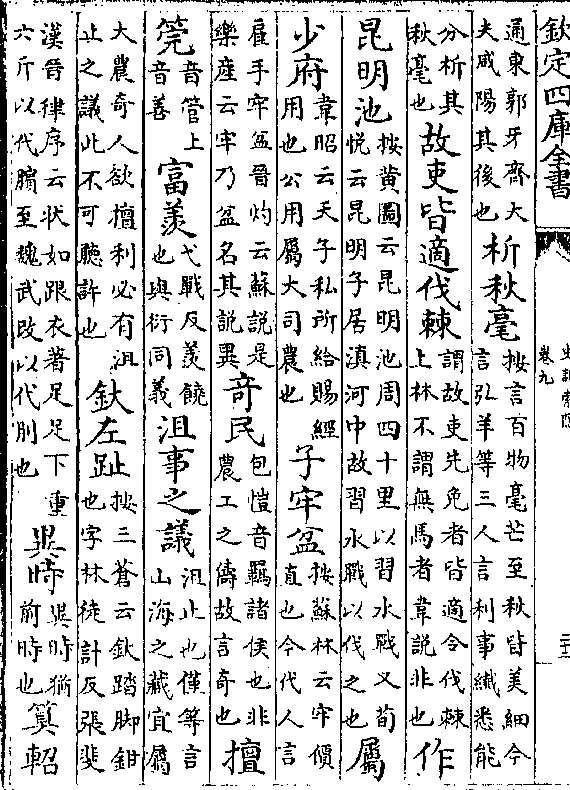 欽定四庫全書
史記索隱
卷九
通東郭牙齊大
夫咸陽其後也
析秋毫
按言百物毫芒至秋皆美細今
言弘羊等三人言利事纖悉能
分析其
秋毫也
故吏皆適伐棘
謂故吏先免者皆適令伐棘
上林不謂無馬者韋說非也
作
昆明池
按黃圖云昆明池周四十里以習水戰又荀
悅云昆明子居滇河中故習水戰以伐之也
屬
少府
韋昭云天子私所給賜經
用也公用屬大司農也
子牢盆
按蘇林云牢價
直也今代人言
雇手牢盆晉灼云蘇說是
樂産云牢乃盆名其說異
奇民
包愷音羈諸侯也非
農工之儔故言奇也
擅
筦
音管上
音善
富羨
弋戰反羨饒
也與衍同義
沮事之議
沮止也僅等言
山海之藏宜屬
大農奇人欲擅利必有沮
止之議此不可聽許也
釱左趾
按三蒼云釱踏脚鉗
也字林徒計反張斐
漢晉律序云狀如跟衣著足足下重
六斤以代臏至魏武改以代刖也
異時
異時猶
前時也
筭軺